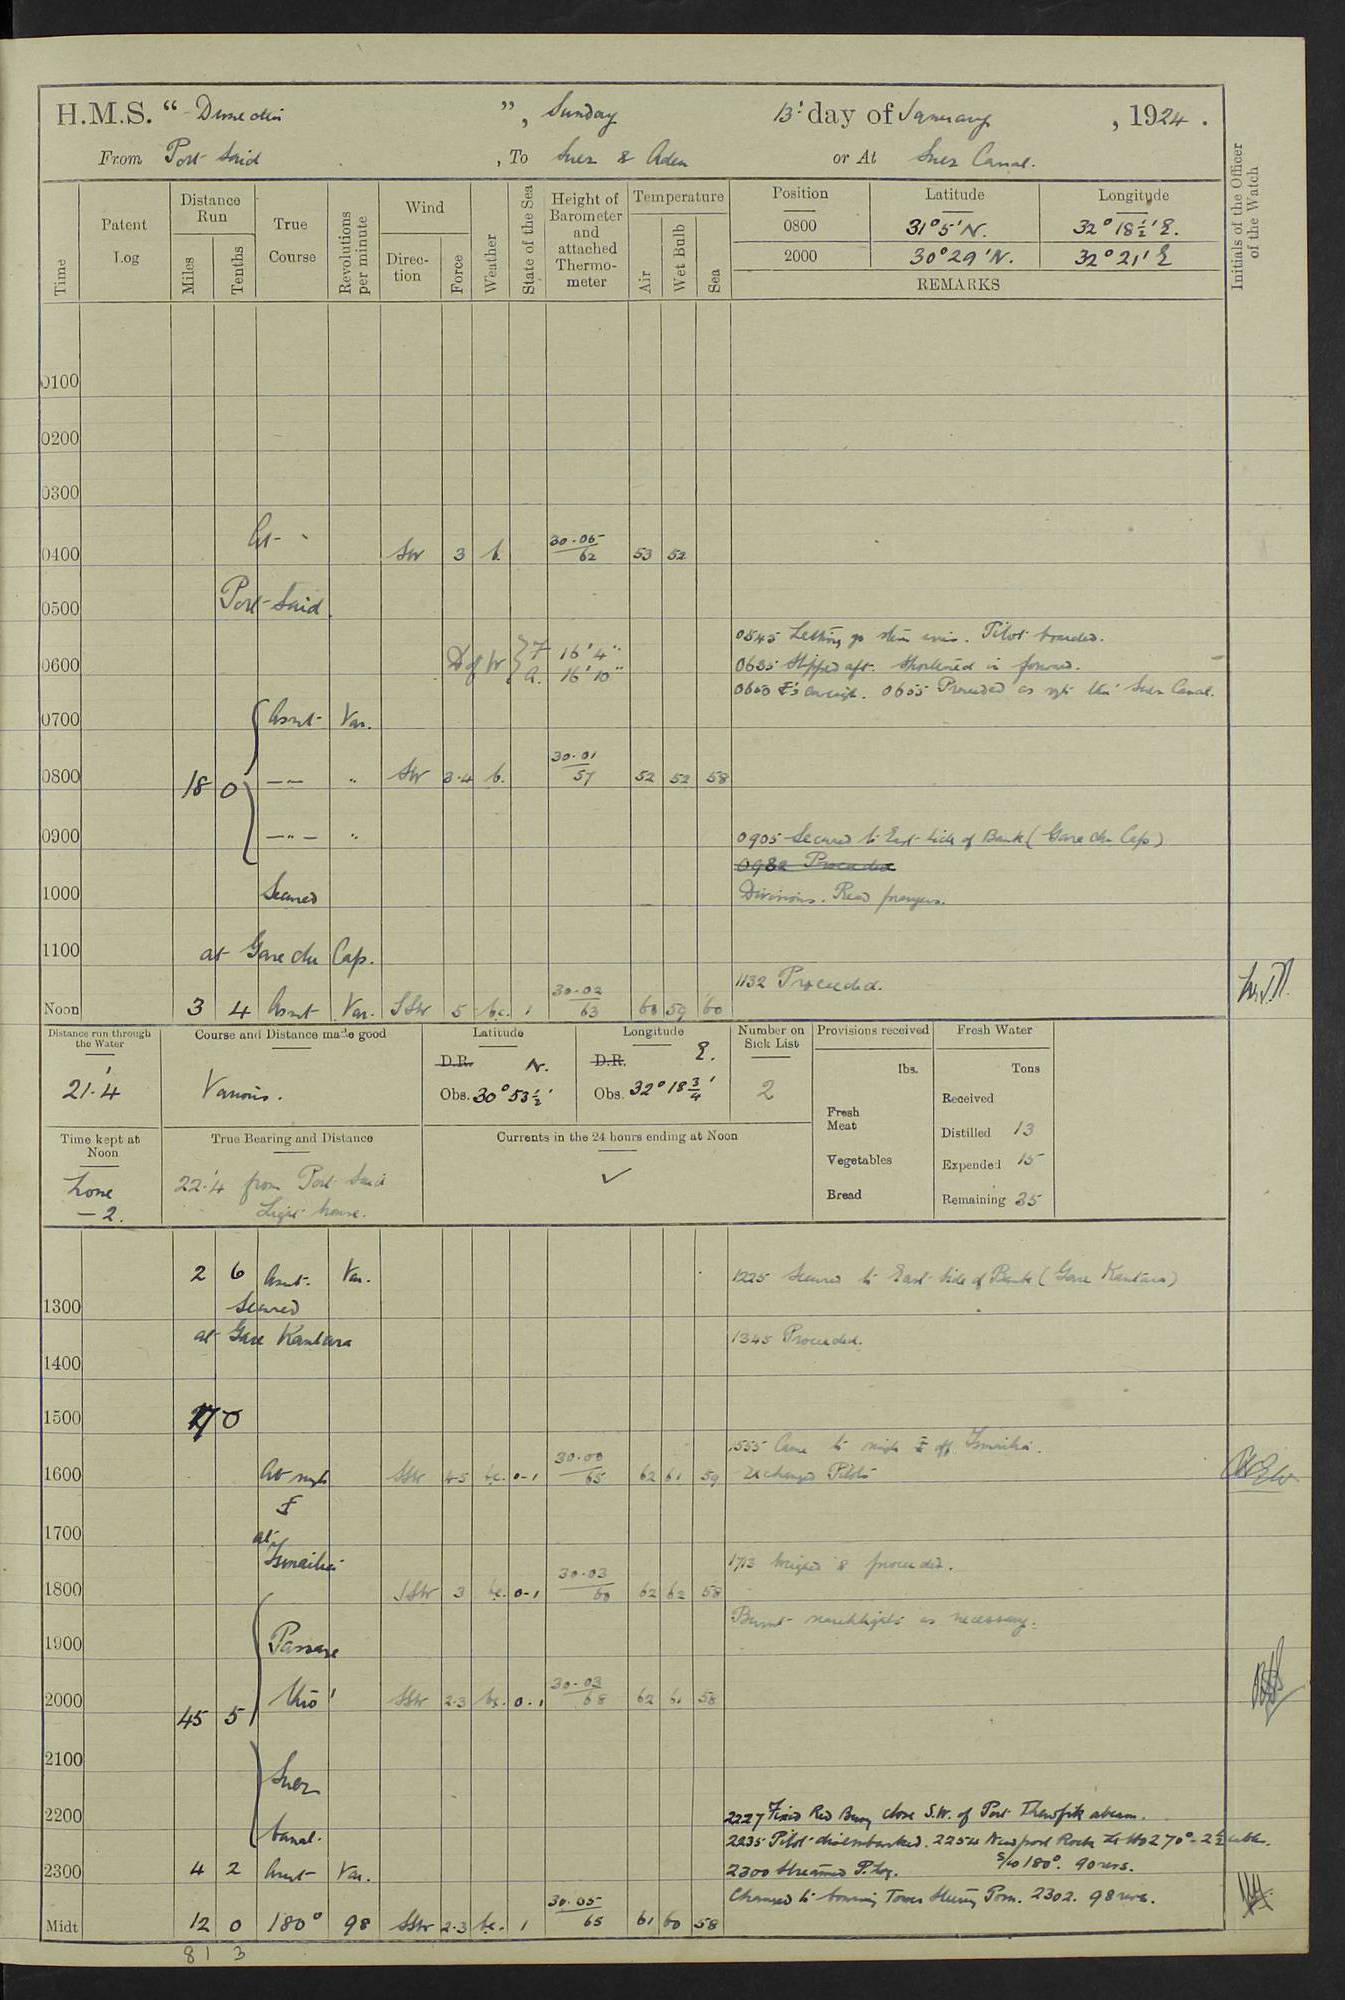 H.M.S. "Dunedin", Sunday 13th day of January, 1924.
From Port Said, To Suez & Aden or At Suez Canal.
Time
Patent Log
Distance Run
Miles
Tenths
True Course
Revolutions per minute
Wind
Direction
Force
Weather
State of the Sea
Height of Barometer and attached Thermometer
Temperature
Air
Wet Bulb
Sea
Position Latitude Longitude
0800 31° 5' N. 32° 18½' E.
2000 30° 29' N. 32° 21' E
REMARKS
Initials of the Officer of the Watch
0100
0200
0300
At
0400 SW 3 b. 30.05 62 53 52
Port Said.
0500
0545 Letting go stern wires. Pilot boarded.
D of W F 16' 4"
A. 16' 10"
0600
0635 Slipped aft. Shortened in forward.
0650 aweigh. 0655 Proceeded as reqte thro' Suez Canal.
0700 Asreqt Var.
0800 18 0 — — " SW 3.4 b. 30.01 57 52 52 58
0900 — " — "
0905 Secured to East side of Bank (Gare du Cap)
Proceeded
1000 Secured
Divisions. Read prayers.
1100 at Gare du Cap.
1132 Proceeded.
Noon 3 4 Asreqt Var. SSW 5 bc. 1 30.02 63 60 59 60
Distance run through the Water
21.4
Course and Distance made good
Various.
Latitude
D.R. N.
Obs. 30° 53½'
Longitude
D.R. E.
Obs. 32° 18¾'
Number on Sick List
2
Provisions received
lbs.
Fresh Meat
Vegetables
Bread
Fresh Water
Tons
Received
Distilled 13
Expended 15
Remaining 35
Time kept at Noon
Zone
– 2.
True Bearing and Distance
22.4 from Port Said
Light house.
Currents in the 24 hours ending at Noon
✓
2 6 Asreqt. Var.
1225 Secured to East side of Bank (Gare Kantara)
1300 Secured
at Gare Kantara
1345 Proceeded.
1400
1500 0
1555 Came to single off Ismailia.
Exchanged Pilots
1600 At single SSW 4-5 bc. 0-1 30.00 65 62 61 59
1700 at Ismailia
1713 Weighed & proceeded.
1800 SSW 3 bc. 0-1 30.03 60 62 62 58
Burnt searchlights as necessary.
1900 Passage
2000 45 5 thro' SSW 2.3 bc. 0.1 30.03 68 62 61 58
2100 Suez
2200 Canal.
2227 Fixed Red Buoy close S.W. of Port Thewfik abeam.
2235 Pilot disembarked. 2254 Newport Rock Lt Ho 270° - 2½ cables.
2300 4 2 Asreqt Var.
2300 Streamed P. Log. S/co 180°. 90 revs.
Changed to Conning Tower Steering Posn. 2302. 98 revs.
Midt 12 0 180° 98 SSW 2.3 bc. 1 30.05 65 61 60 58
81 3